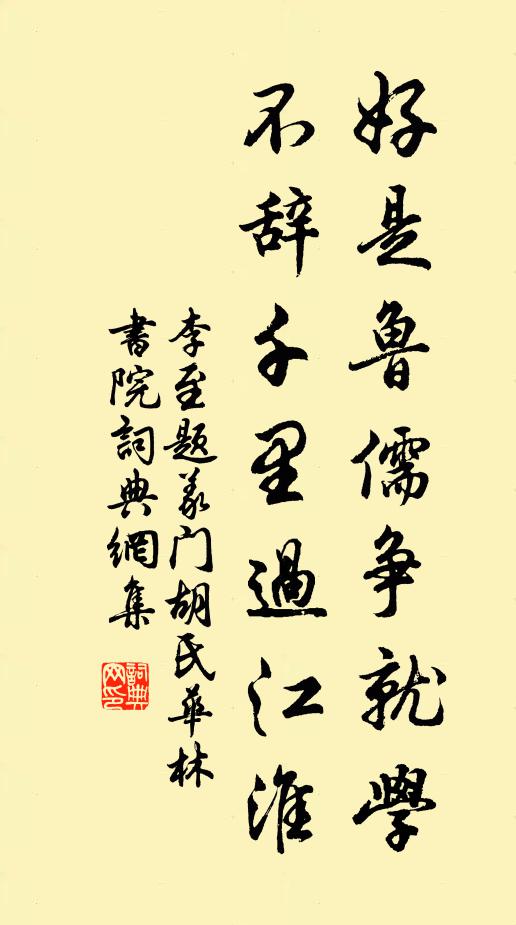 好是魯儒争就學
不辞千里過江淮
李至题义门胡氏華林
書院詞典網集
詞典網印